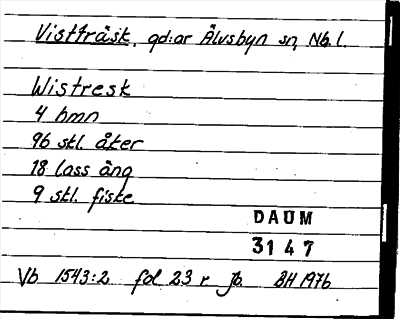 Vistträsk, gd:ar Älvsbyn sn, Nb. l.
Wistresk
4 hmn
96 stl. åker
18 lass äng
9 stl. fiske
DAUM
3147
Vb 1543:2 fol 23 r Jb. BH 1976